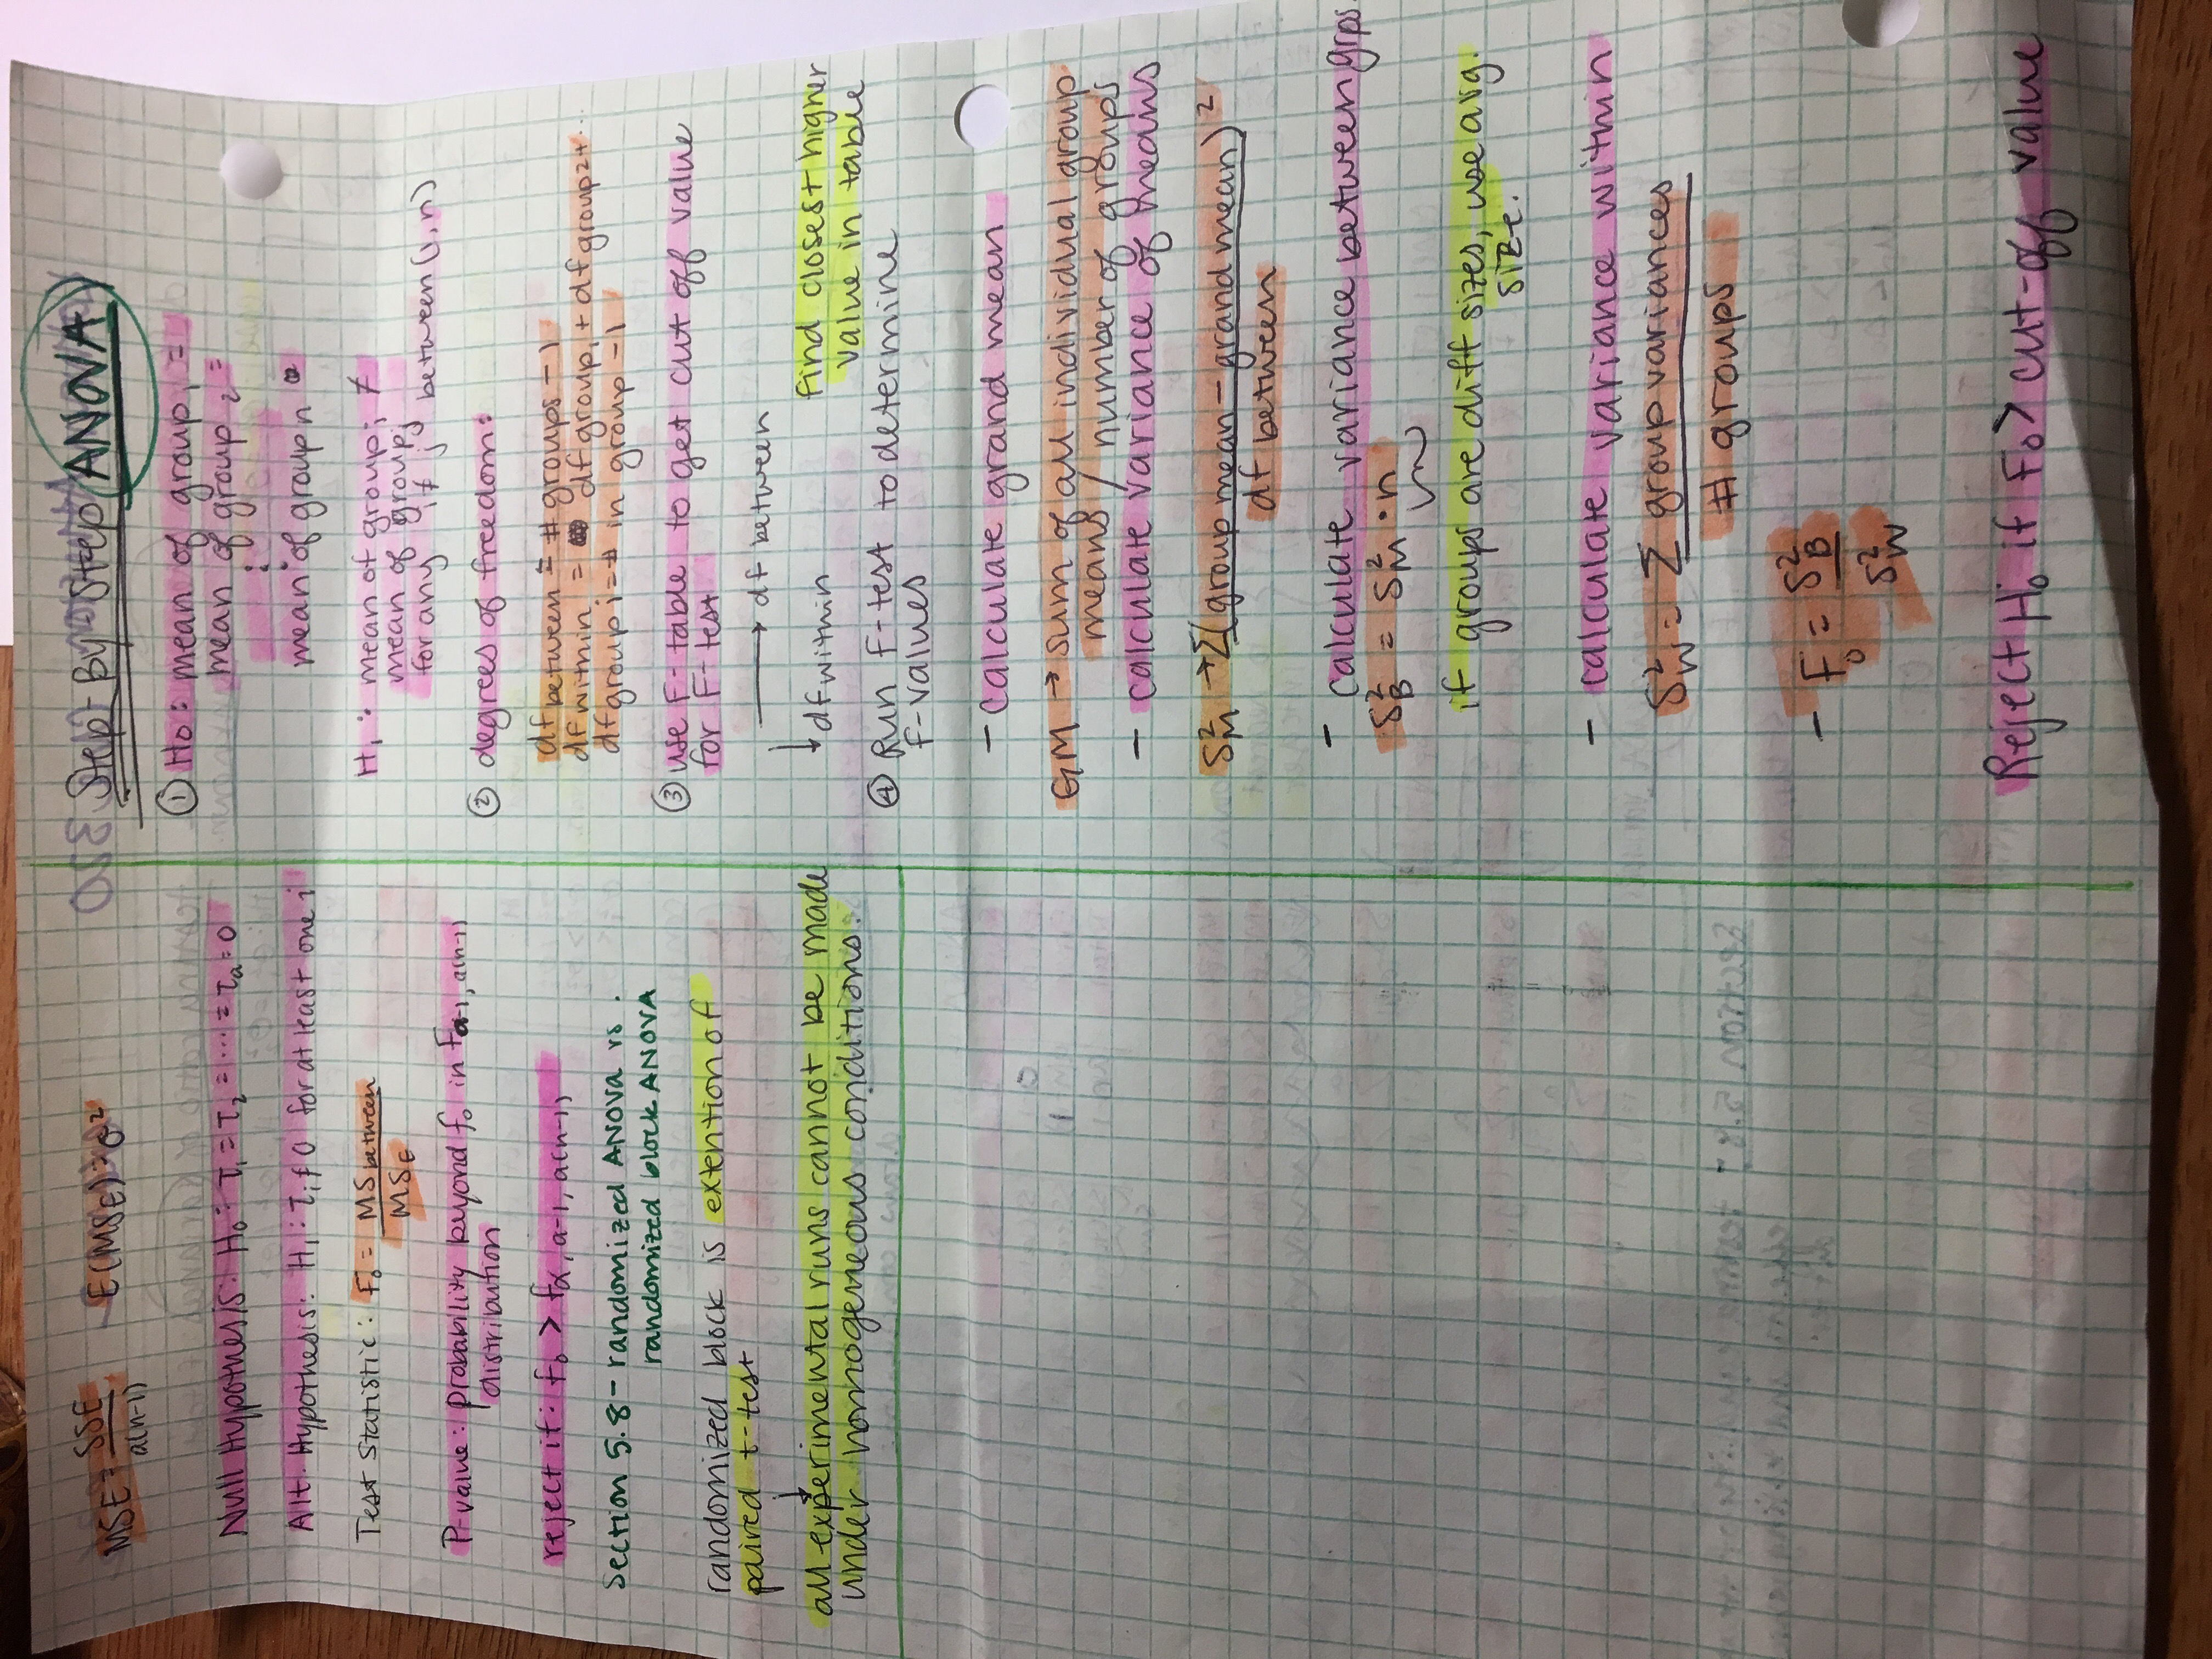 MSE = SSE / a(n-1)    E(MSE) = σ²
Null Hypothesis: H₀ = τ₁ = τ₂ = ... = τₐ = 0
Alt. Hypothesis: H₁ : τᵢ ≠ 0 for at least one i
Test Statistic: F₀ = MS between / MSE
P-value: probability beyond f₀ in Fa-1, a(n-1)
distribution
reject if: f₀ > fα, a-1, a(n-1)
Section 5.8 - randomized ANOVA vs.
randomized block ANOVA
randomized block is extention of
paired t-test
↓
all experimental runs cannot be made
under homogeneous conditions.
Step-By-Step ANOVA
① H₀: mean of group₁ =
mean of group₂ =
⋮
mean of group n
H₁ : mean of groupᵢ ≠
mean of groupⱼ
for any i ≠ j between (1, n)
② degrees of freedom:
df between = # groups - 1
df within = df group₁ + df group₂ + ...
df group i = # in group - 1
③ use F-table to get cut off value
for F-test
→ df between
↓ df within
find closest higher
value in table
④ Run F-test to determine
F-values
- calculate grand mean
GM → sum of all individual group
means / number of groups
- calculate variance of means
S²M → Σ(group mean - grand mean)²
df between
- calculate variance between grps.
S²B = S²M · n
if groups are diff sizes, use avg.
size.
- calculate variance within
S²W = Σ group variances
# groups
- F₀ = S²B
S²W
Reject H₀ if F₀ > cut-off value